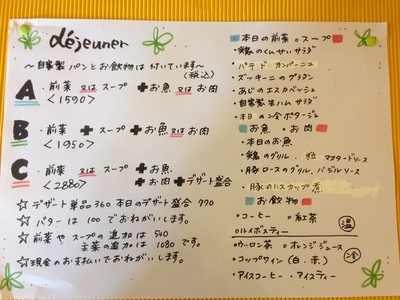 déjeuner
～自家製パンとお飲物は付いています～
(税込)
A ・前菜 又は スープ ✚ お魚 又は お肉
<1590>
B ・前菜 ✚ スープ ✚ お魚 又は お肉
<1950>
C ・前菜 又は スープ ✚ お魚
<2880> ✚ お肉 ✚ デザート盛合
☆デザート単品360 本日のデザート盛合 770
☆バターは100でおねがいします。
☆前菜やスープの追加は540
主菜の追加は1080です。
☆現金のお支払いでおねがいします。
本日の前菜 スープ
・鶏のくんせいサラダ
・パテ ド カンパーニュ
・ズッキーニのグラタン
・あじのエスカベッシュ
・自家製生ハムサラダ
・本日の冷ポタージュ
お魚 お肉
・本日のお魚
・鶏のグリル、粒マスタードソース
・豚ロースのグリル、バジルソース
・豚のハスカップ煮
お飲物
・コーヒー ・紅茶 温
・ルイボスティー
・ウーロン茶 ・オレンジジュース 冷
・コップワイン(白・赤)
・アイスコーヒー ・アイスティー